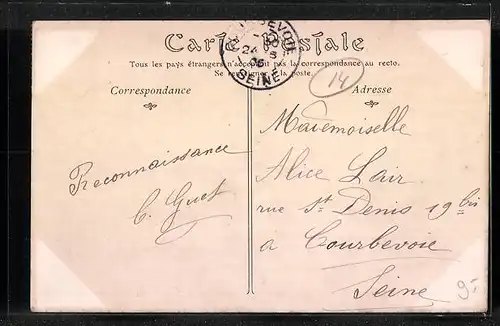 Carte Postale
COURBEVOIE
SEINE
Tous les pays étrangers n'acceptent pas la correspondance au recto.
Se renseigner à la poste.
14
Correspondance
Adresse
Mademoiselle
Reconnaissance
Alice Lair
C. Guet
rue St Denis 19 bis
a Courbevoie
Seine
9-